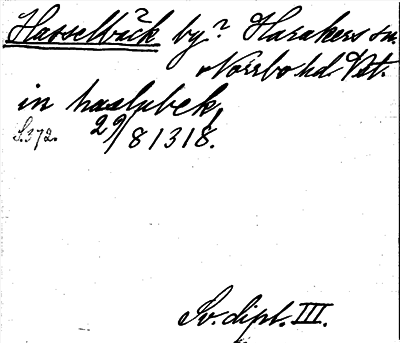 Hasselbäck by? Harakers sn.
Norrbo hd. Vstm.
in haslubek,
S.372. 29/8 1318.
Sv. dipl. III.